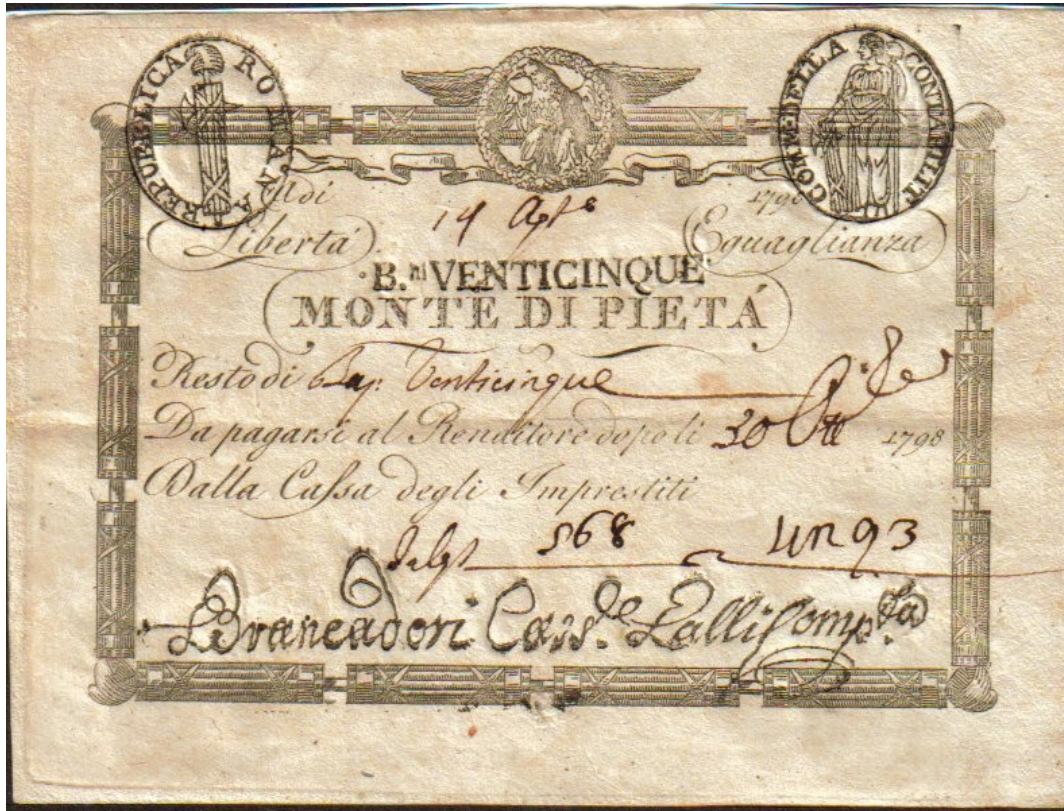 REPUBBLICA ROMANA
COMP. DELLA CONTABILIT
A di 14 Agte 179
Libertá Eguaglianza
B.ni VENTICINQUE
MONTE DI PIETÁ
Resto di Baj. Venticinque
Da pagarsi al Renditore dopo li 30 1798
Dalla Cassa degli Imprestiti
568
Brancadori Cass.re Lalli Comp.ta